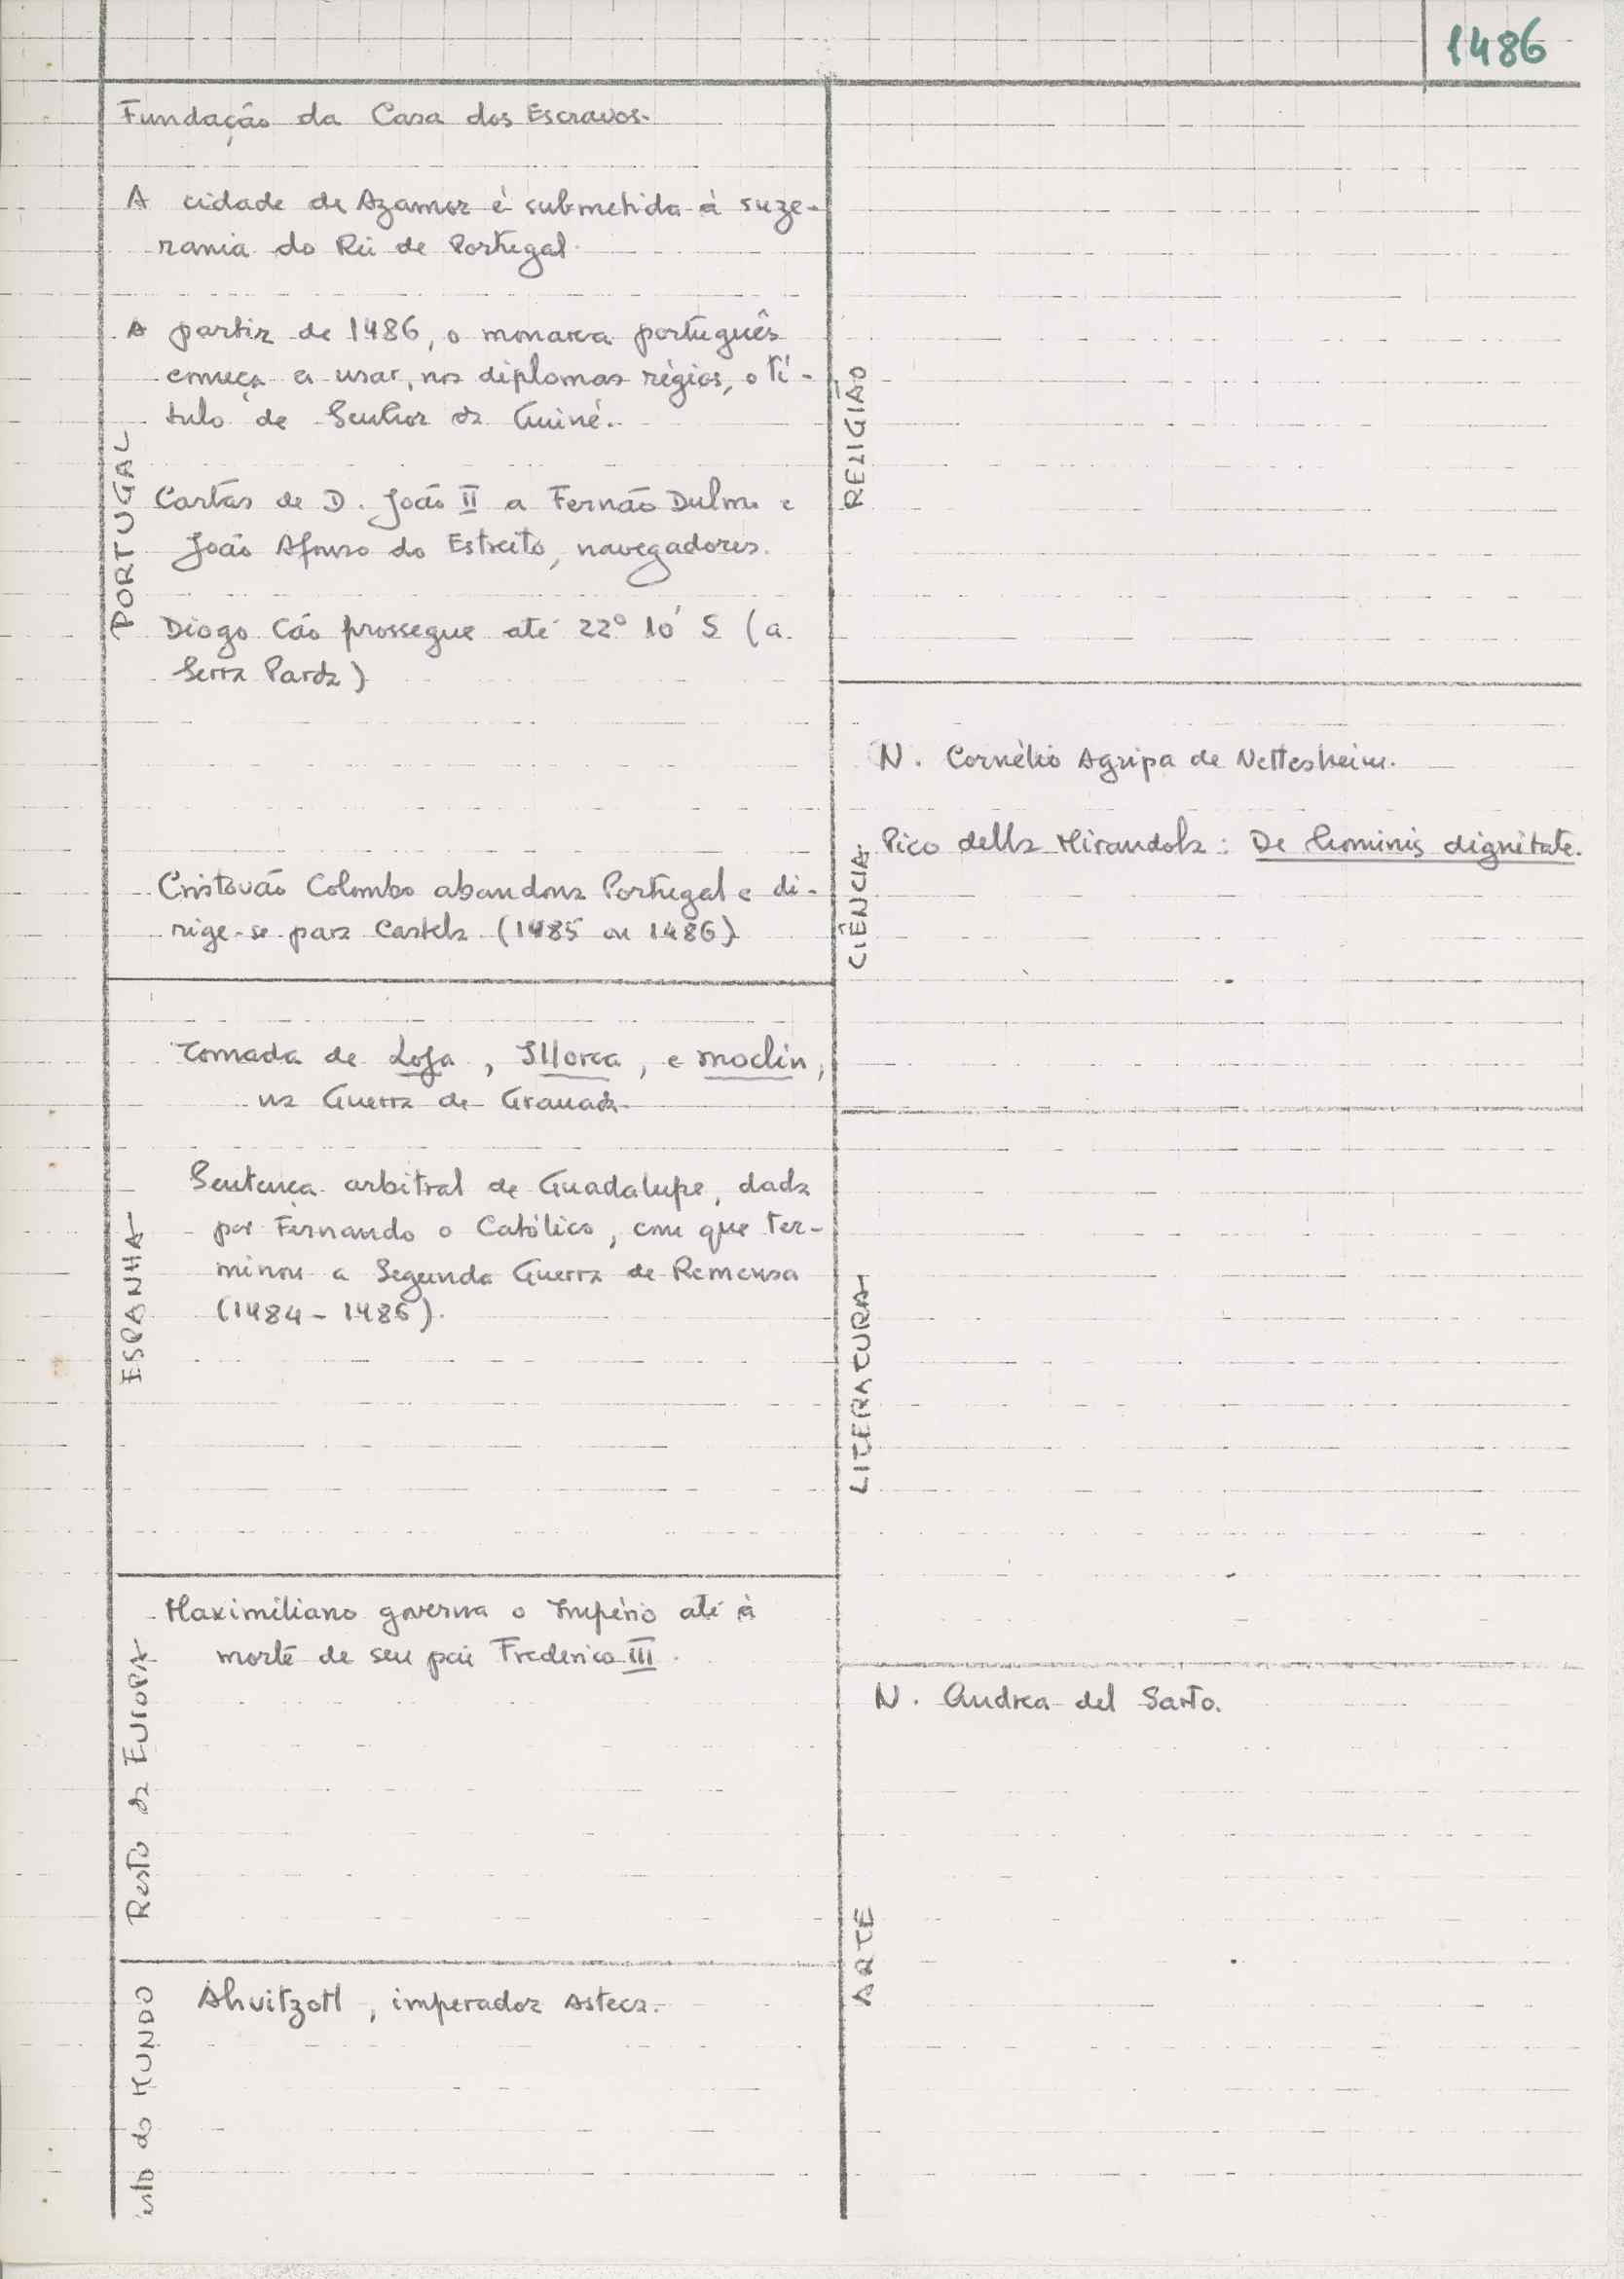 1486
PORTUGAL
Fundação da Casa dos Escravos.
A cidade de Azamor é submetida à suze-
rania do Rei de Portugal.
A partir de 1486, o monarca português
começa a usar, nos diplomas régios, o tí-
tulo de Senhor da Guiné.
Cartas de D. João II a Fernão Dulmo e
João Afonso do Estreito, navegadores.
Diogo Cão prossegue até 22° 10' S (a
Serra Parda)
Cristóvão Colombo abandona Portugal e di-
rige-se para Castela (1485 ou 1486)
ESPANHA
Tomada de Loja, Illorca, e Moclin,
na Guerra de Granada.
Sentença arbitral de Guadalupe, dada
por Fernando o Católico, com que ter-
minou a Segunda Guerra de Remensa
(1484-1486).
Resto da EUROPA
Maximiliano governa o Império até à
morte de seu pai Frederico III.
esto do MUNDO
Ahuitzotl, imperador Asteca.
RELIGIÃO
CIÊNCIA
N. Cornélio Agripa de Nettesheim.
Pico della Mirandola: De hominis dignitate.
LITERATURA
ARTE
N. Andrea del Sarto.